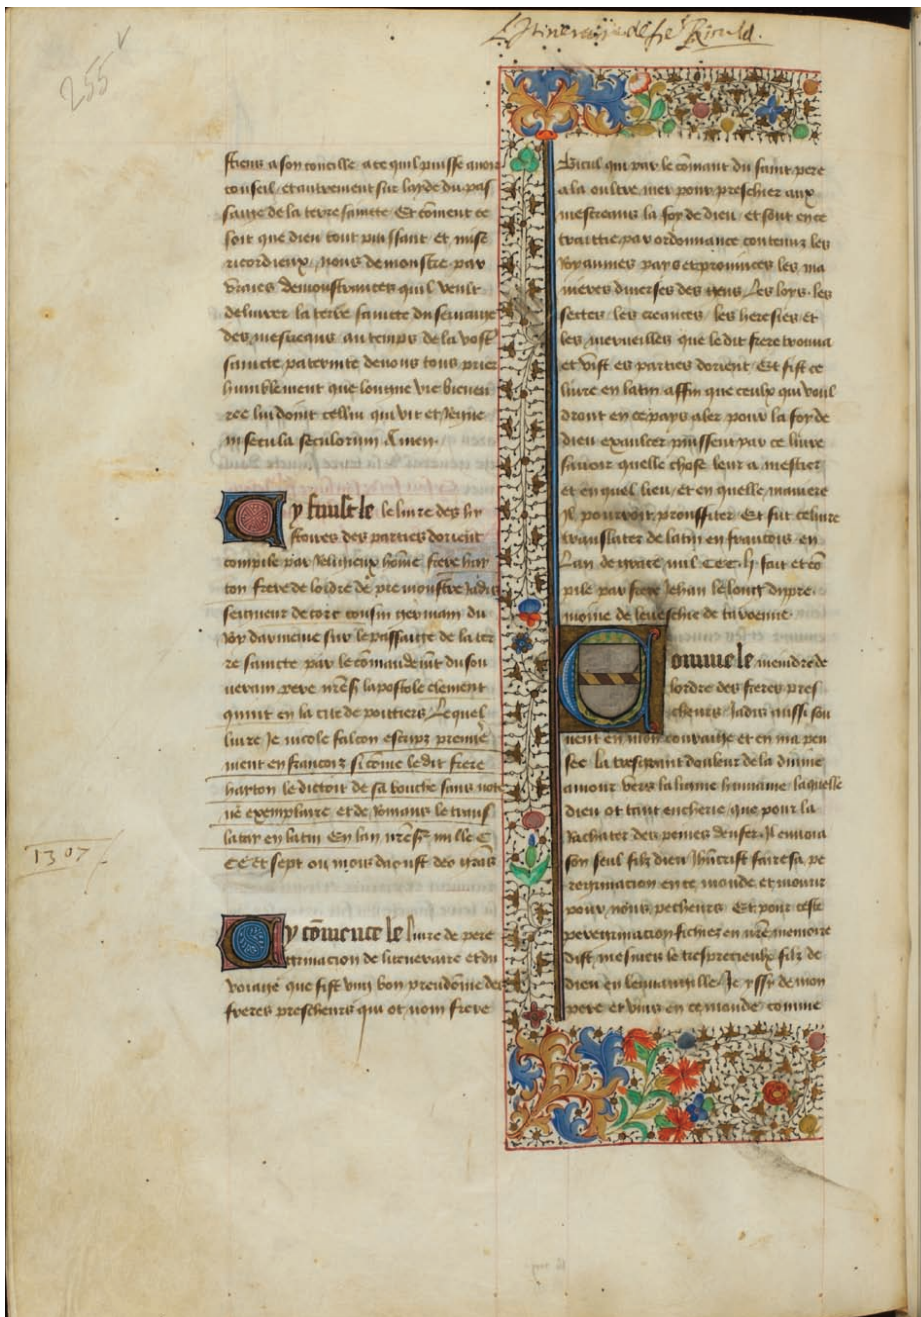 255
v
L'Itineraire de fr̃e Riculd.
stiens a son concille a ce quil puisse avoir
conseil et autrement sur layde du pas
saige de la terre saincte Et cõment ce
soit que dieu tout puissant et mise
ricordieux nous demonstre par
vraies demonstrances quil veult
delivrer la terre saincte du servaige
des mescreans au temps de la vostr̃
saincte paternite devons tous prier
humblement que longue vie bieneu
ree lui doint cellui qui vit et regne
in secula seculorum Amen.
Cy fenist le livre des hy
stoires des parties dorient
compile par religieux hõme frere hay
ton frere de lordre de premonstre jadis
seigneur de core cousin germain du
roy darmenie sur le passaige de la ter
re saincte par le cõmandemt̃ du sou
verain pere nr̃es̃ lapostole clement
quint en la cite de poittiers Lequel
livre Je nicole falcon escrips premie
ment en francois si cõme le dit frere
hayton le dictoit de sa bouche sans note
ne exemplaire et de romans le trans
latay en latin En lan nr̃es̃ mille C
CC et sept ou mois daoust deo gras̃
1307
Cy cõmence le livre de pere
grinacion de litineraire et du
voiaige que fist ung bon preudõme des
freres prescheurs qui ot nom frere
Bicul qui par le cõmant du saint pere
ala oultre mer pour preschier aux
mescreans la foy de dieu et sont en ce
traittie par ordonnance contenuz les
royaumes pays et provinces les ma
nieres diverses des gens Les loys les
sectes les creances les heresies et
les merveilles que le dit frere trouva
et vist es parties dorient Et fist ce
livre en latin affin que ceulx qui voul
dront en ce pays aler pour la foy de
dieu exaulcer puissent par ce livre
savoir quelle chose leur a mestier
et en quel lieu et en quelle maniere
Ilz pourroit prouffiter Et fut ce livre
translatez de latin en francois en
Lan de grace mil CCC. lj fait et cõ
pile par frere Jehan le long dypre
moine de leveschie de taroenne
Comme le meindre de
lordre des freres pres
cheurs Jadis aussi sou
vent en mon couraige et en ma pen
see la tresgrant doulceur de la divine
amour vers la lignie humaine laquelle
dieu ot tant encherie que pour la
rachater des peines denfer Il envoia
son seul filz dieu Jhũcrist faire sa pe
regrinacion en ce monde et mourir
pour nous pecheurs Et pour ceste
peregrinacion fichiez en nr̃e memoire
dist mesmes le tresprecieulx filz de
dieu en leuuangille Je yssy de mon
pere et vins en ce monde comme